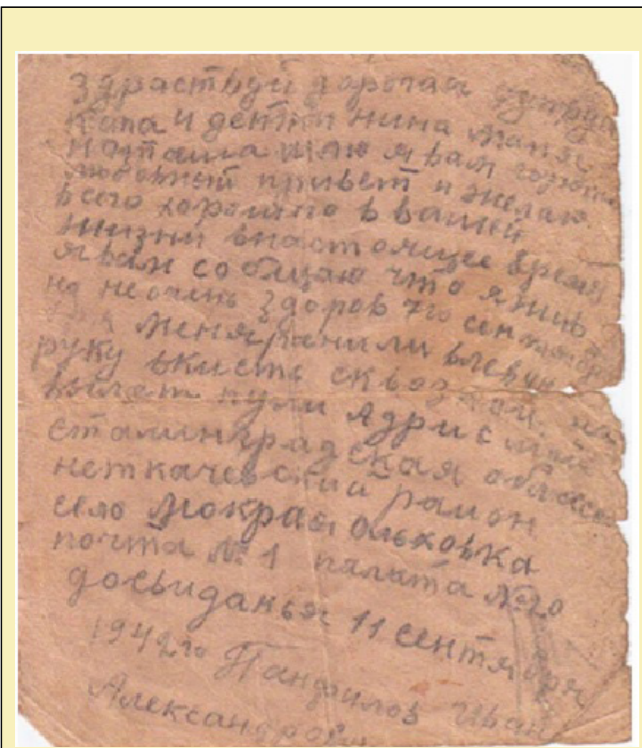 здраствуй дорогая супруг
капа и детки нина маня
наташа шлю я вам горячий
любовный привет и желаю
всего хорошго в вашей
жизни внастоящее время
я вам сообщаю что я жив
но неочень здоров го сентября
меня ранили влевую
руку вкисть сквозной
вылет пули адрис мой
сталинградская област
неткачевский район
село мокрая ольховка
почта №1 палата №20
досвиданья 11 сентября
1942го Панфилов Иван
Александрови